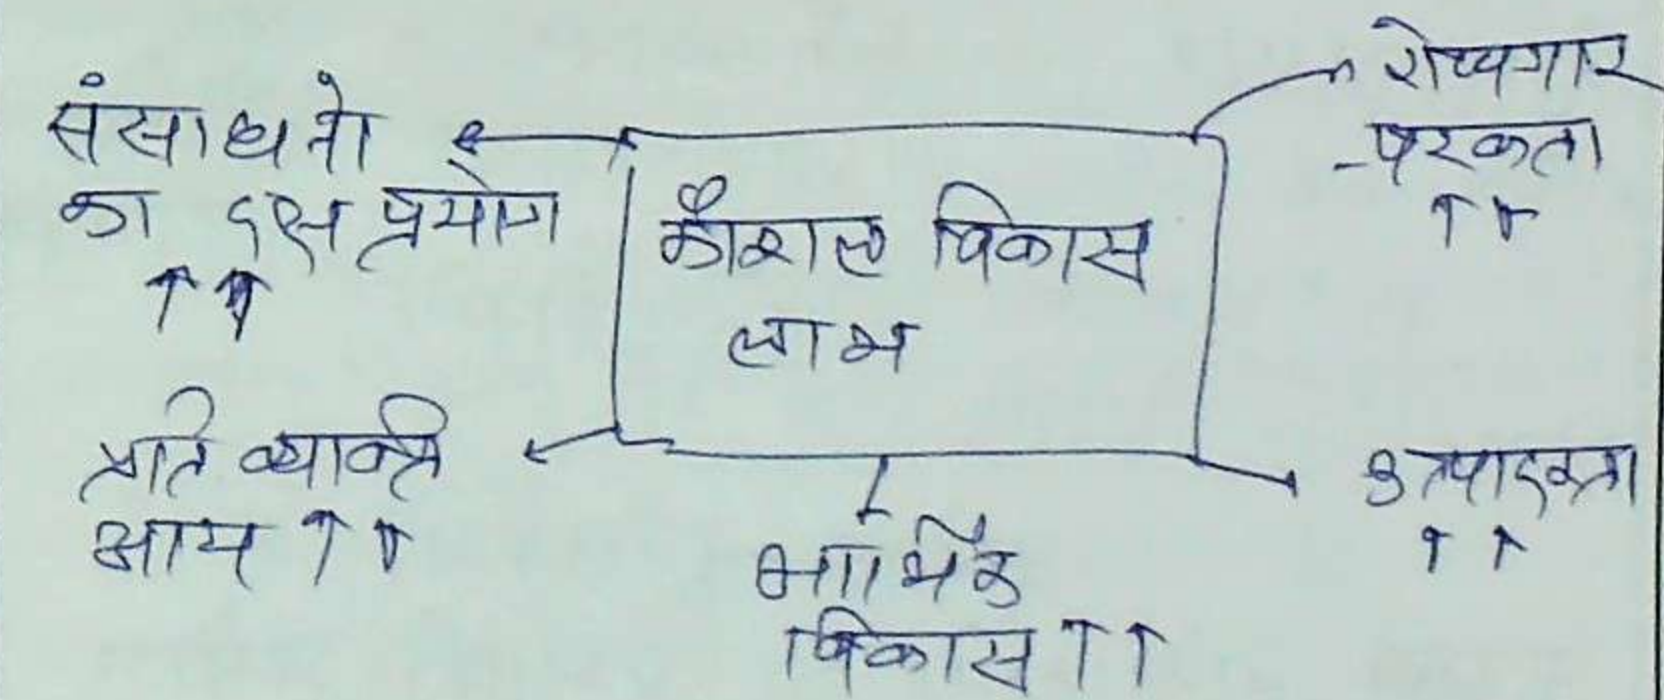 संसाधनो
का दक्ष प्रयोग
↑↑
कौशल विकास
लाभ
रोजगार
-परकता
↑↑
प्रति व्यक्ति
आय ↑↑
आर्थिक
विकास ↑↑
उत्पादकता
↑↑